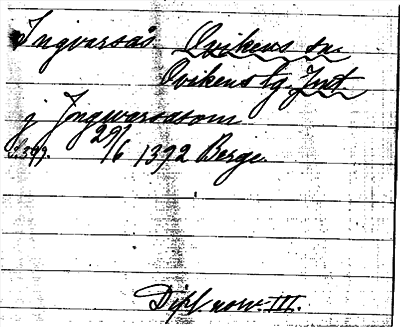 Ingvarsås Ovikens sn.
Ovikens tg. Jmt
j Jngwarsasom
S. 397. 29/6 1392 Berge.
Dipl. norv. III.